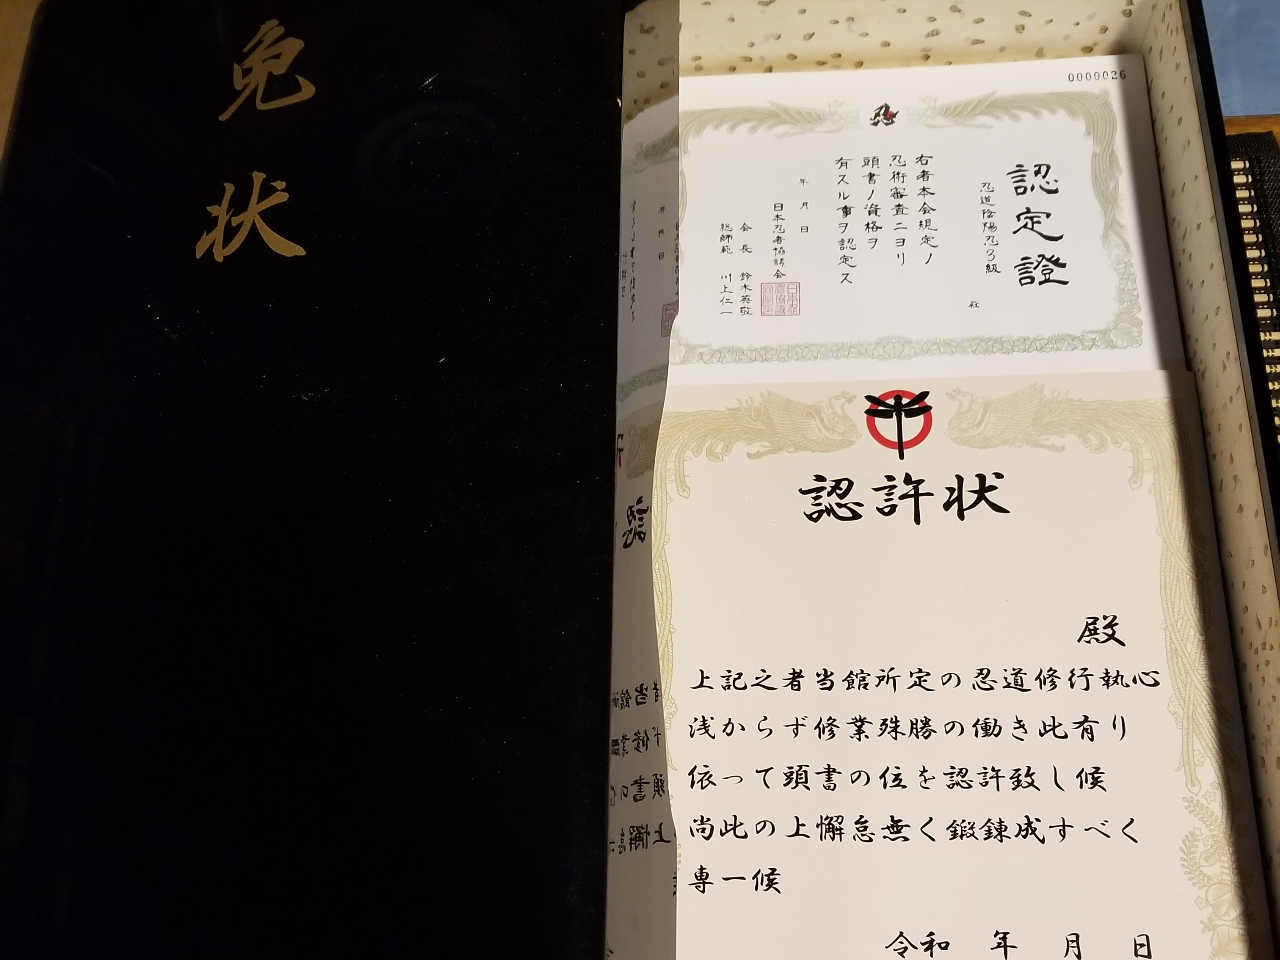 免状
0000026
認定證
忍道陰陽忍3級
殿
右者本会規定ノ
忍術審査ニヨリ
頭書ノ資格ヲ
有スル事ヲ認定ス
年月日
日本忍者協議会
会長 鈴木英敬
総師範 川上仁一
認許状
殿
上記之者当館所定の忍道修行執心
浅からず修業殊勝の働き此有り
依って頭書の位を認許致し候
尚此の上懈怠無く鍛錬成すべく
専一候
令和 年 月 日